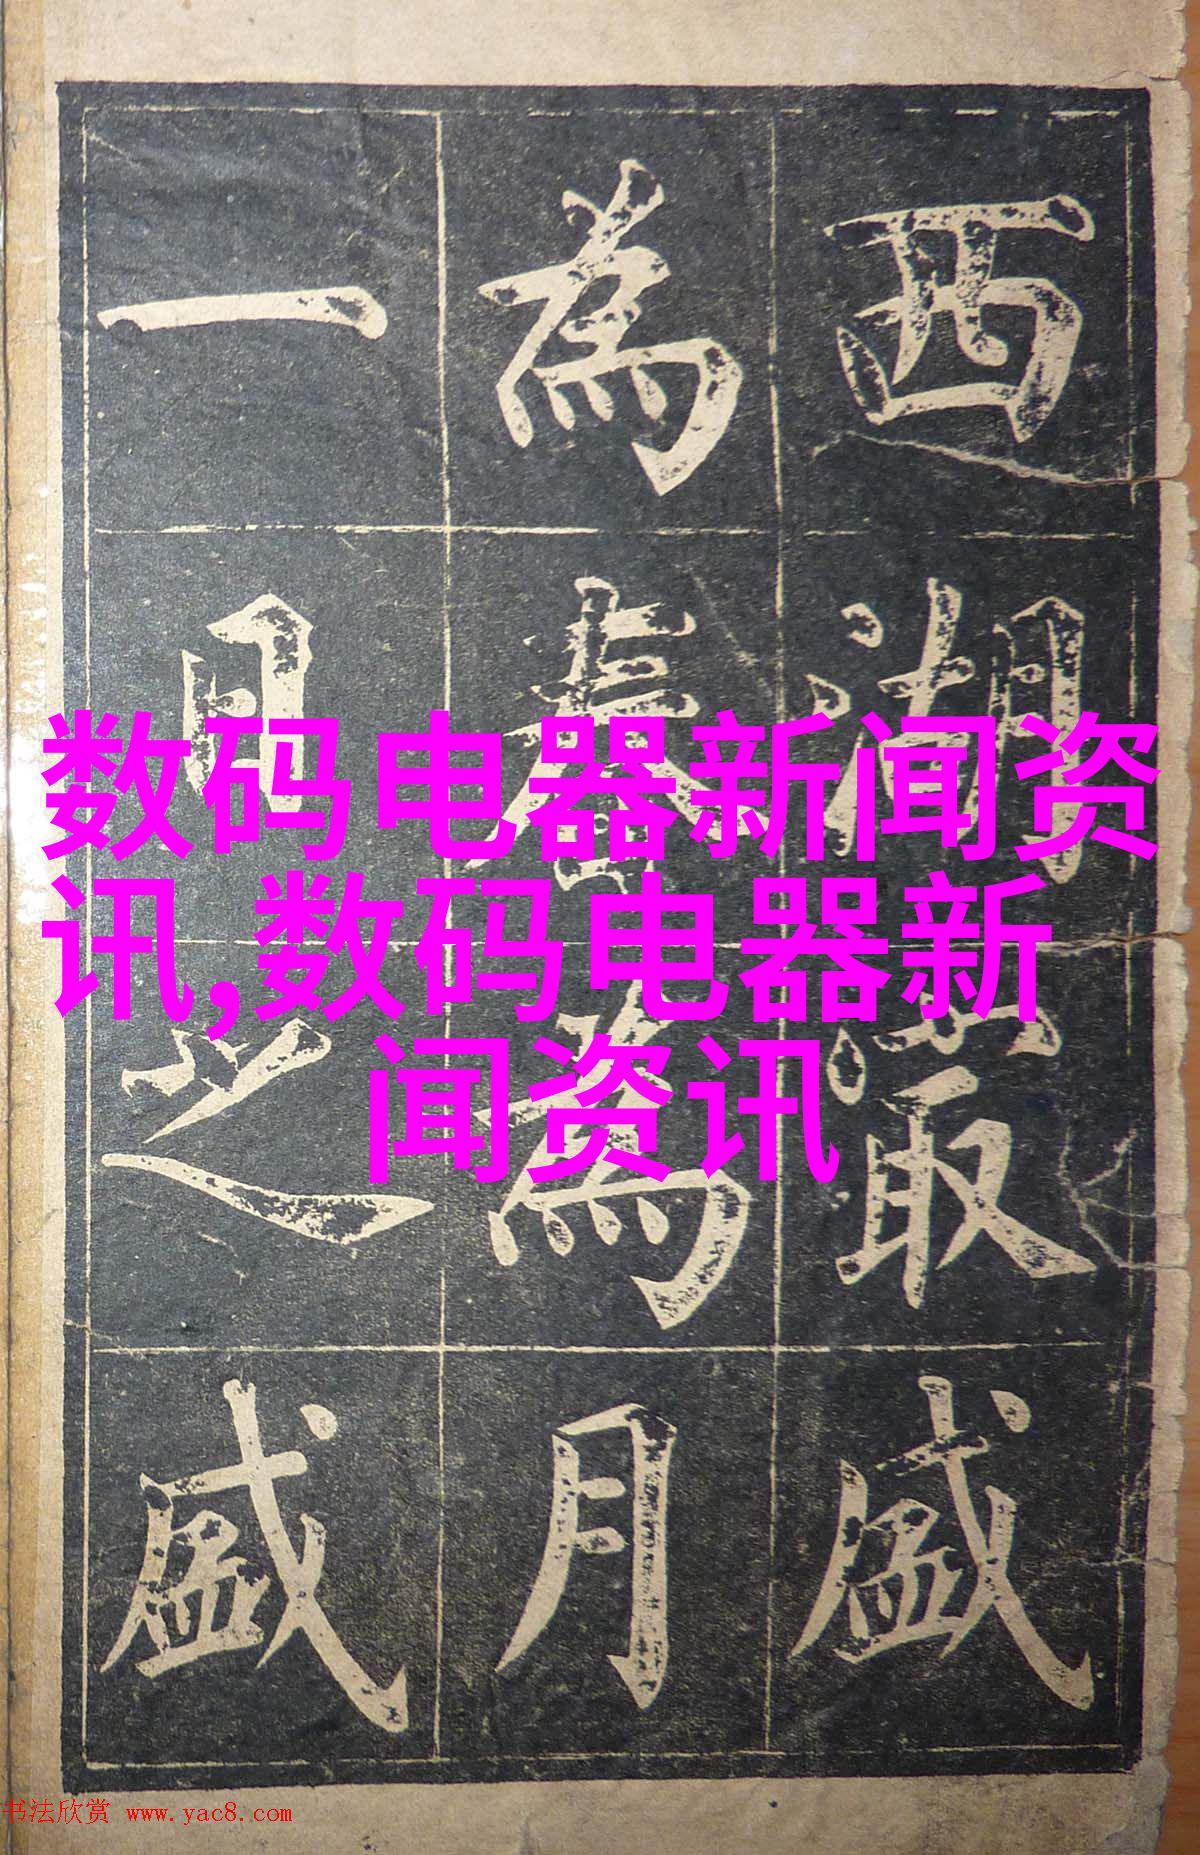 西湖最盛
為春為月
一日之盛
数码电器新闻资
讯,数码电器新
闻资讯
书法欣赏 www.yac8.com